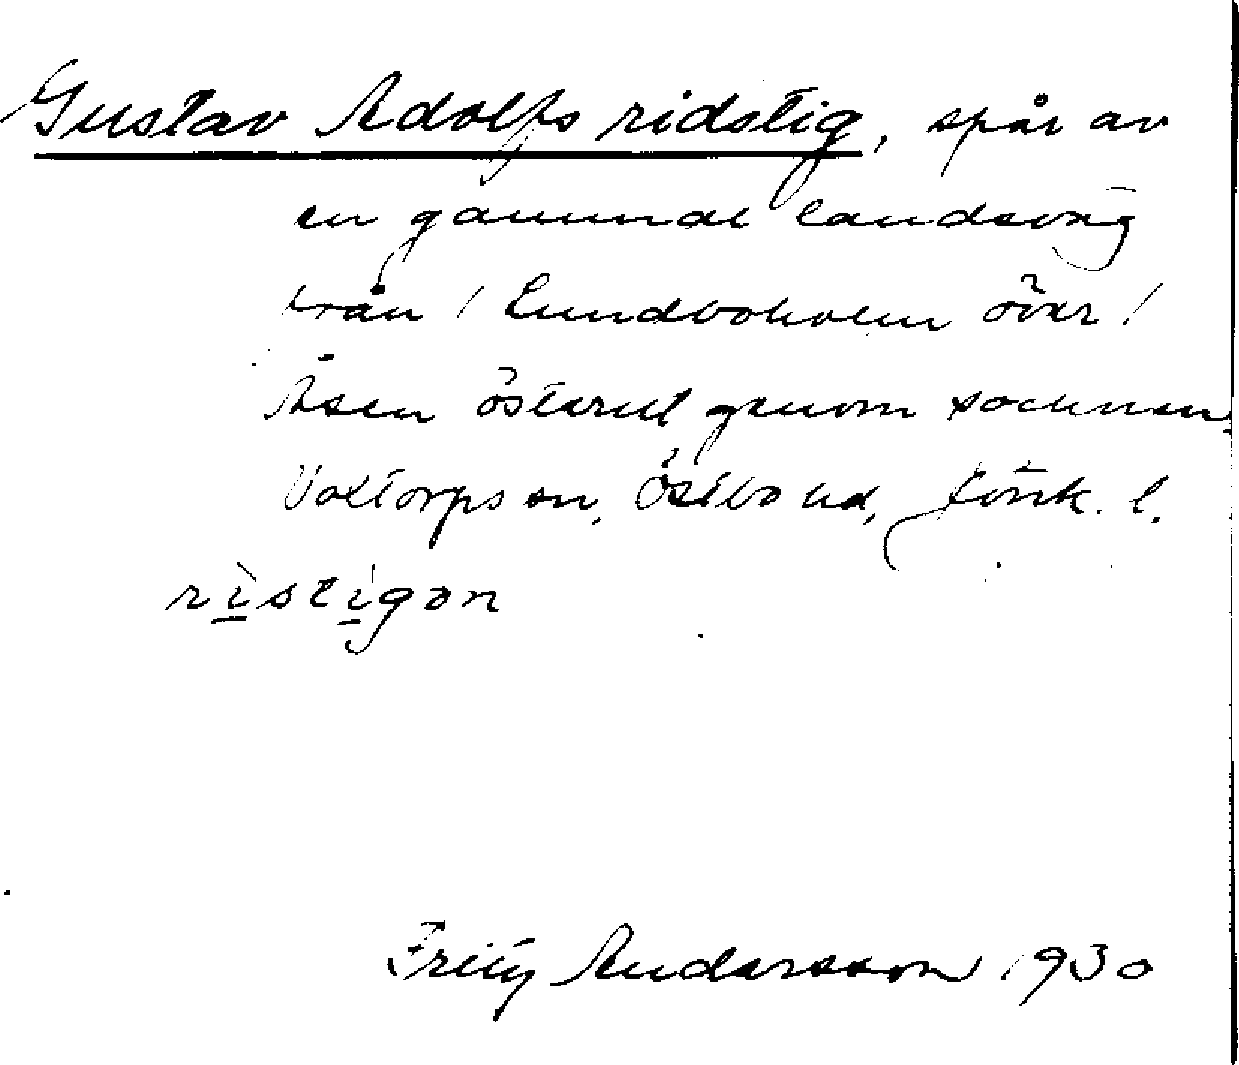 Gustav Adolfs ridstig, spår av
en gammal landsväg
från / Lundboholm över /
Åsen österut genom socknen.
Voxtorps sn, Östbo hd, Jönk. l.
ristigən
Fritz Andersson 1930